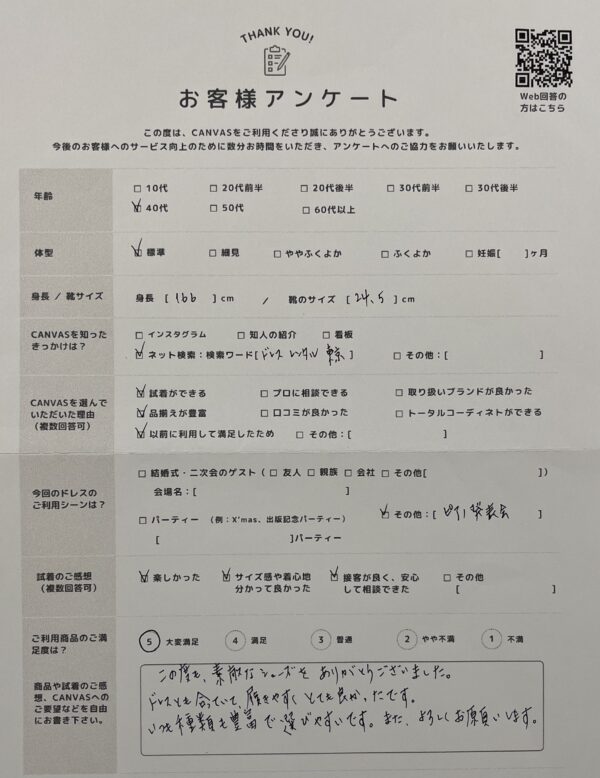 THANK YOU!
お客様アンケート
Web回答の
方はこちら
この度は、CANVASをご利用くださり誠にありがとうございます。
今後のお客様へのサービス向上のために数分お時間をいただき、アンケートへのご協力をお願いいたします。
年齢
□ 10代 □ 20代前半 □ 20代後半 □ 30代前半 □ 30代後半
☑ 40代 □ 50代 □ 60代以上
体型
☑ 標準 □ 細見 □ ややふくよか □ ふくよか □ 妊娠[ ]ヶ月
身長 / 靴サイズ
身長 [ 166 ] cm / 靴のサイズ [ 24.5 ] cm
CANVASを知った
きっかけは？
□ インスタグラム □ 知人の紹介 □ 看板
☑ ネット検索：検索ワード[ ドレス レンタル 東京 ] □ その他：[ ]
CANVASを選んで
いただいた理由
（複数回答可）
☑ 試着ができる □ プロに相談できる □ 取り扱いブランドが良かった
☑ 品揃えが豊富 □ 口コミが良かった □ トータルコーディネトができる
☑ 以前に利用して満足したため □ その他：[ ]
今回のドレスの
ご利用シーンは？
□ 結婚式・二次会のゲスト（ □ 友人 □ 親族 □ 会社 □ その他[ ]）
会場名：[ ]
□ パーティー （例：X'mas、出版記念パーティー） ☑ その他：[ ピアノ発表会 ]
[ ]パーティー
試着のご感想
（複数回答可）
☑ 楽しかった ☑ サイズ感や着心地 ☑ 接客が良く、安心 □ その他
分かって良かった して相談できた [ ]
ご利用商品のご満
足度は？
⑤ 大変満足 ④ 満足 ③ 普通 ② やや不満 ① 不満
商品や試着のご感
想、CANVASへの
ご要望などを自由
にお書き下さい。
この度も、素敵なシューズを ありがとうございました。
ドレスとも合っていて、履きやすく とても良かったです。
いつも種類も豊富で選びやすいです。また、よろしくお願いします。